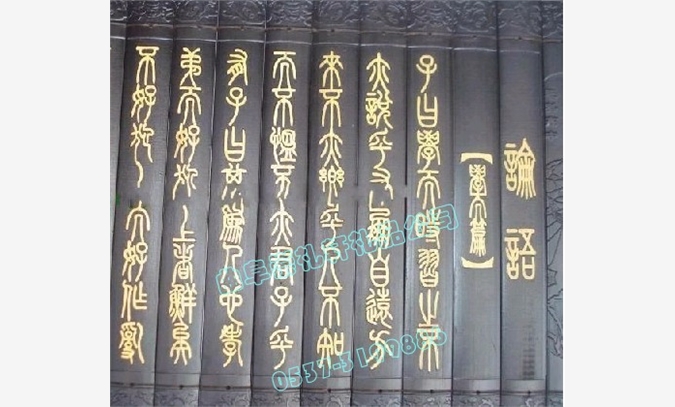 論語
【學而篇】
子曰學而時習之不
亦說乎有朋自遠方
來不亦樂乎人不知
而不慍不亦君子乎
有子曰其為人也孝
弟而好犯上者鮮矣
不好犯上而好作亂
礼轩礼品公司